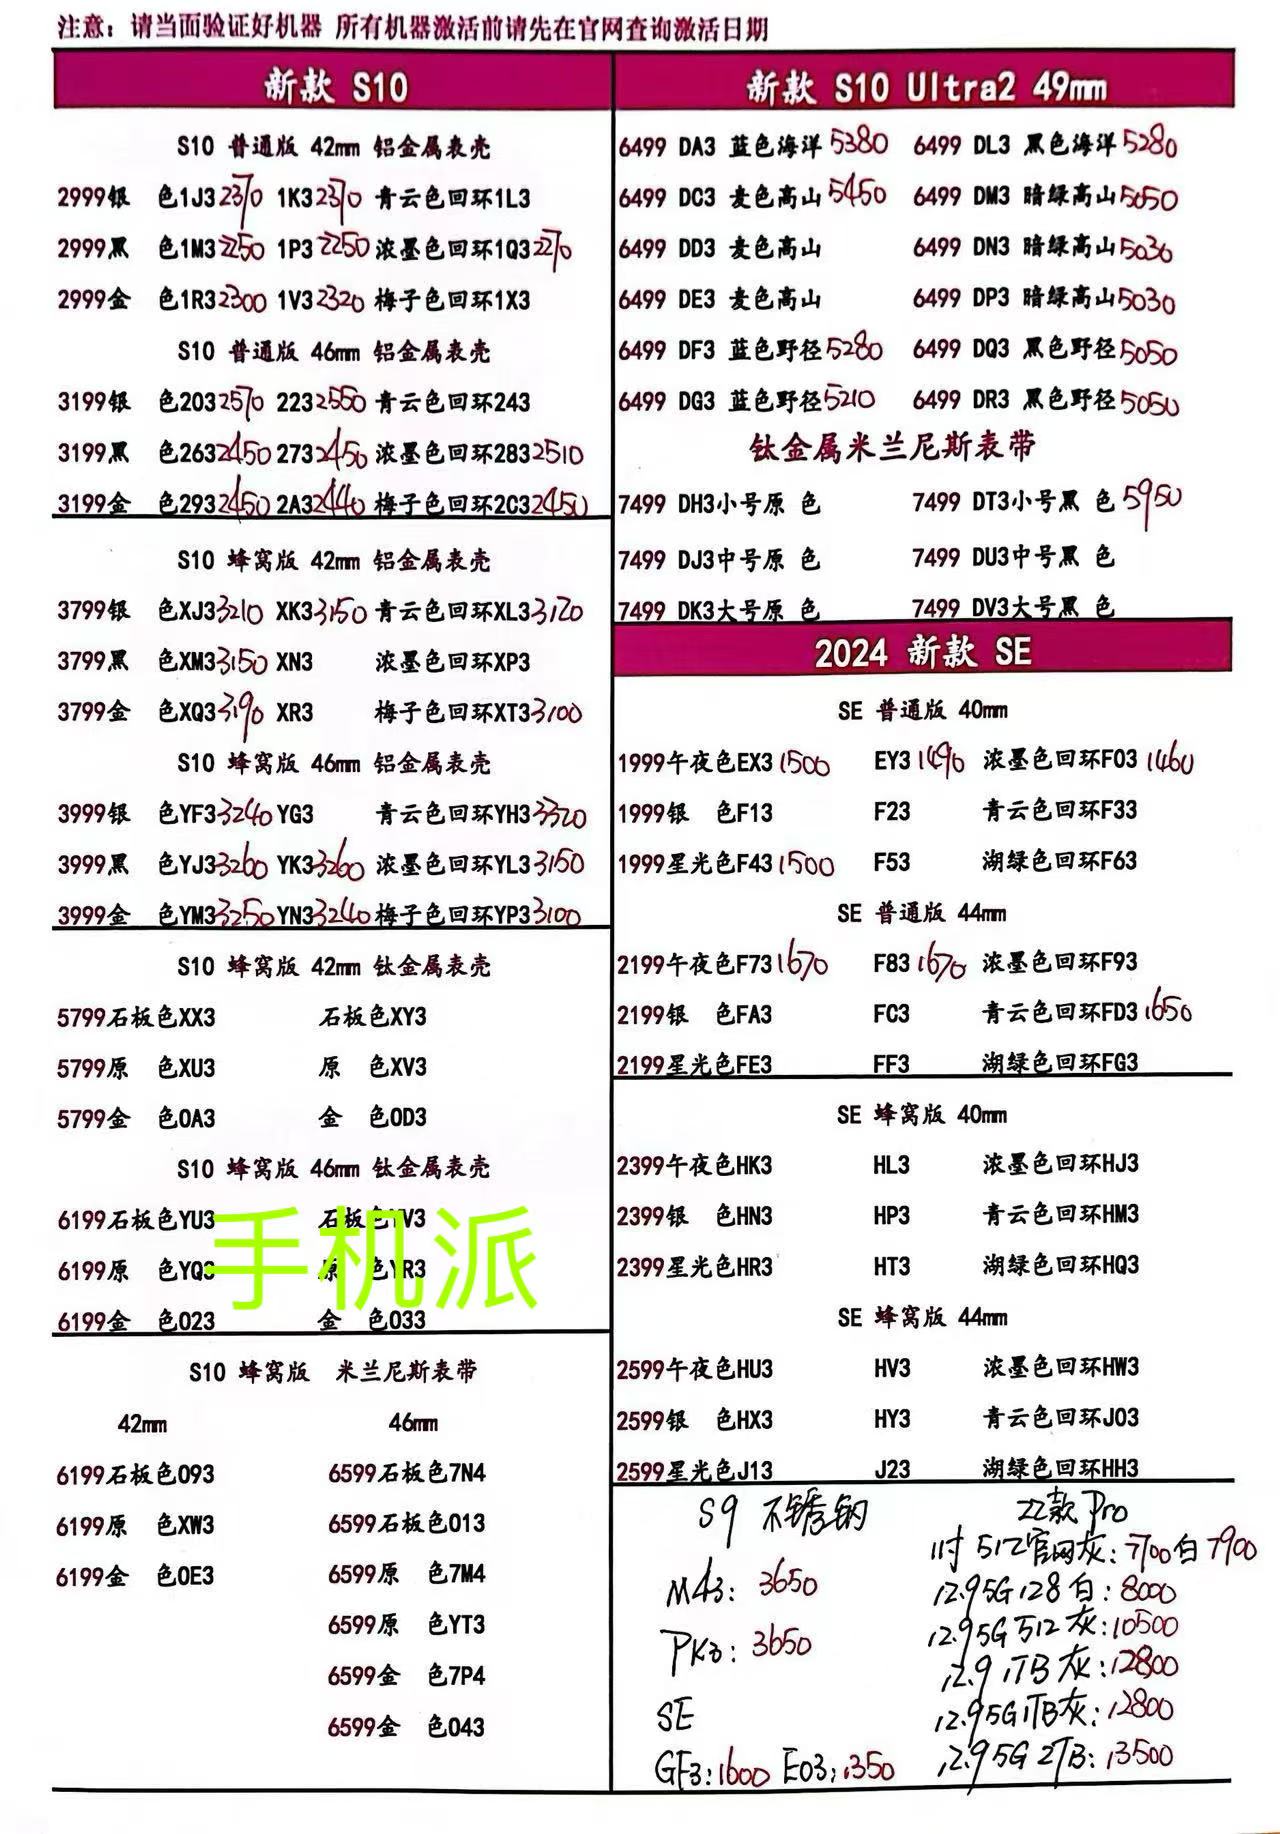 注意：请当面验证好机器 所有机器激活前请先在官网查询激活日期
新款 S10
S10 普通版 42mm 铝金属表壳
2999银 色1J3 2370 1K3 2370 青云色回环1L3
2999黑 色1M3 2250 1P3 2250 浓墨色回环1Q3 2270
2999金 色1R3 2300 1V3 2320 梅子色回环1X3
S10 普通版 46mm 铝金属表壳
3199银 色203 2570 223 2550 青云色回环243
3199黑 色263 2450 273 2450 浓墨色回环283 2510
3199金 色293 2450 2A3 2440 梅子色回环2C3 2450
S10 蜂窝版 42mm 铝金属表壳
3799银 色XJ3 3210 XK3 3150 青云色回环XL3 3120
3799黑 色XM3 3150 XN3 浓墨色回环XP3
3799金 色XQ3 3190 XR3 梅子色回环XT3 3100
S10 蜂窝版 46mm 铝金属表壳
3999银 色YF3 3240 YG3 青云色回环YH3 3320
3999黑 色YJ3 3260 YK3 3260 浓墨色回环YL3 3150
3999金 色YM3 3250 YN3 3240 梅子色回环YP3 3100
S10 蜂窝版 42mm 钛金属表壳
5799石板色XX3 石板色XY3
5799原 色XU3 原 色XV3
5799金 色0A3 金 色0D3
S10 蜂窝版 46mm 钛金属表壳
6199石板色YU3 石板色YV3
6199原 色YQ3 原 色YR3
6199金 色023 金 色033
手机派
S10 蜂窝版 米兰尼斯表带
42mm 46mm
6199石板色093 6599石板色7N4
6199原 色XW3 6599石板色013
6199金 色0E3 6599原 色7M4
6599原 色YT3
6599金 色7P4
6599金 色043
新款 S10 Ultra2 49mm
6499 DA3 蓝色海洋 5380 6499 DL3 黑色海洋 5280
6499 DC3 麦色高山 5450 6499 DM3 暗绿高山 5050
6499 DD3 麦色高山 6499 DN3 暗绿高山 5030
6499 DE3 麦色高山 6499 DP3 暗绿高山 5030
6499 DF3 蓝色野径 5280 6499 DQ3 黑色野径 5050
6499 DG3 蓝色野径 5210 6499 DR3 黑色野径 5050
钛金属米兰尼斯表带
7499 DH3小号原 色 7499 DT3小号黑 色 5950
7499 DJ3中号原 色 7499 DU3中号黑 色
7499 DK3大号原 色 7499 DV3大号黑 色
2024 新款 SE
SE 普通版 40mm
1999午夜色EX3 1500 EY3 1490 浓墨色回环F03 1460
1999银 色F13 F23 青云色回环F33
1999星光色F43 1500 F53 湖绿色回环F63
SE 普通版 44mm
2199午夜色F73 1670 F83 1670 浓墨色回环F93
2199银 色FA3 FC3 青云色回环FD3 1650
2199星光色FE3 FF3 湖绿色回环FG3
SE 蜂窝版 40mm
2399午夜色HK3 HL3 浓墨色回环HJ3
2399银 色HN3 HP3 青云色回环HM3
2399星光色HR3 HT3 湖绿色回环HQ3
SE 蜂窝版 44mm
2599午夜色HU3 HV3 浓墨色回环HW3
2599银 色HX3 HY3 青云色回环J03
2599星光色J13 J23 湖绿色回环HH3
S9 不锈钢
M43: 3650
PK3: 3650
SE
GF3: 1600 E03: 1350
22款 Pro
11寸 512官网灰: 7700 白 7900
12.9 5G 128 白: 8000
12.9 5G 512 灰: 10500
12.9 1TB 灰: 12800
12.9 5G 1TB灰: 12800
12.9 5G 2TB: 13500